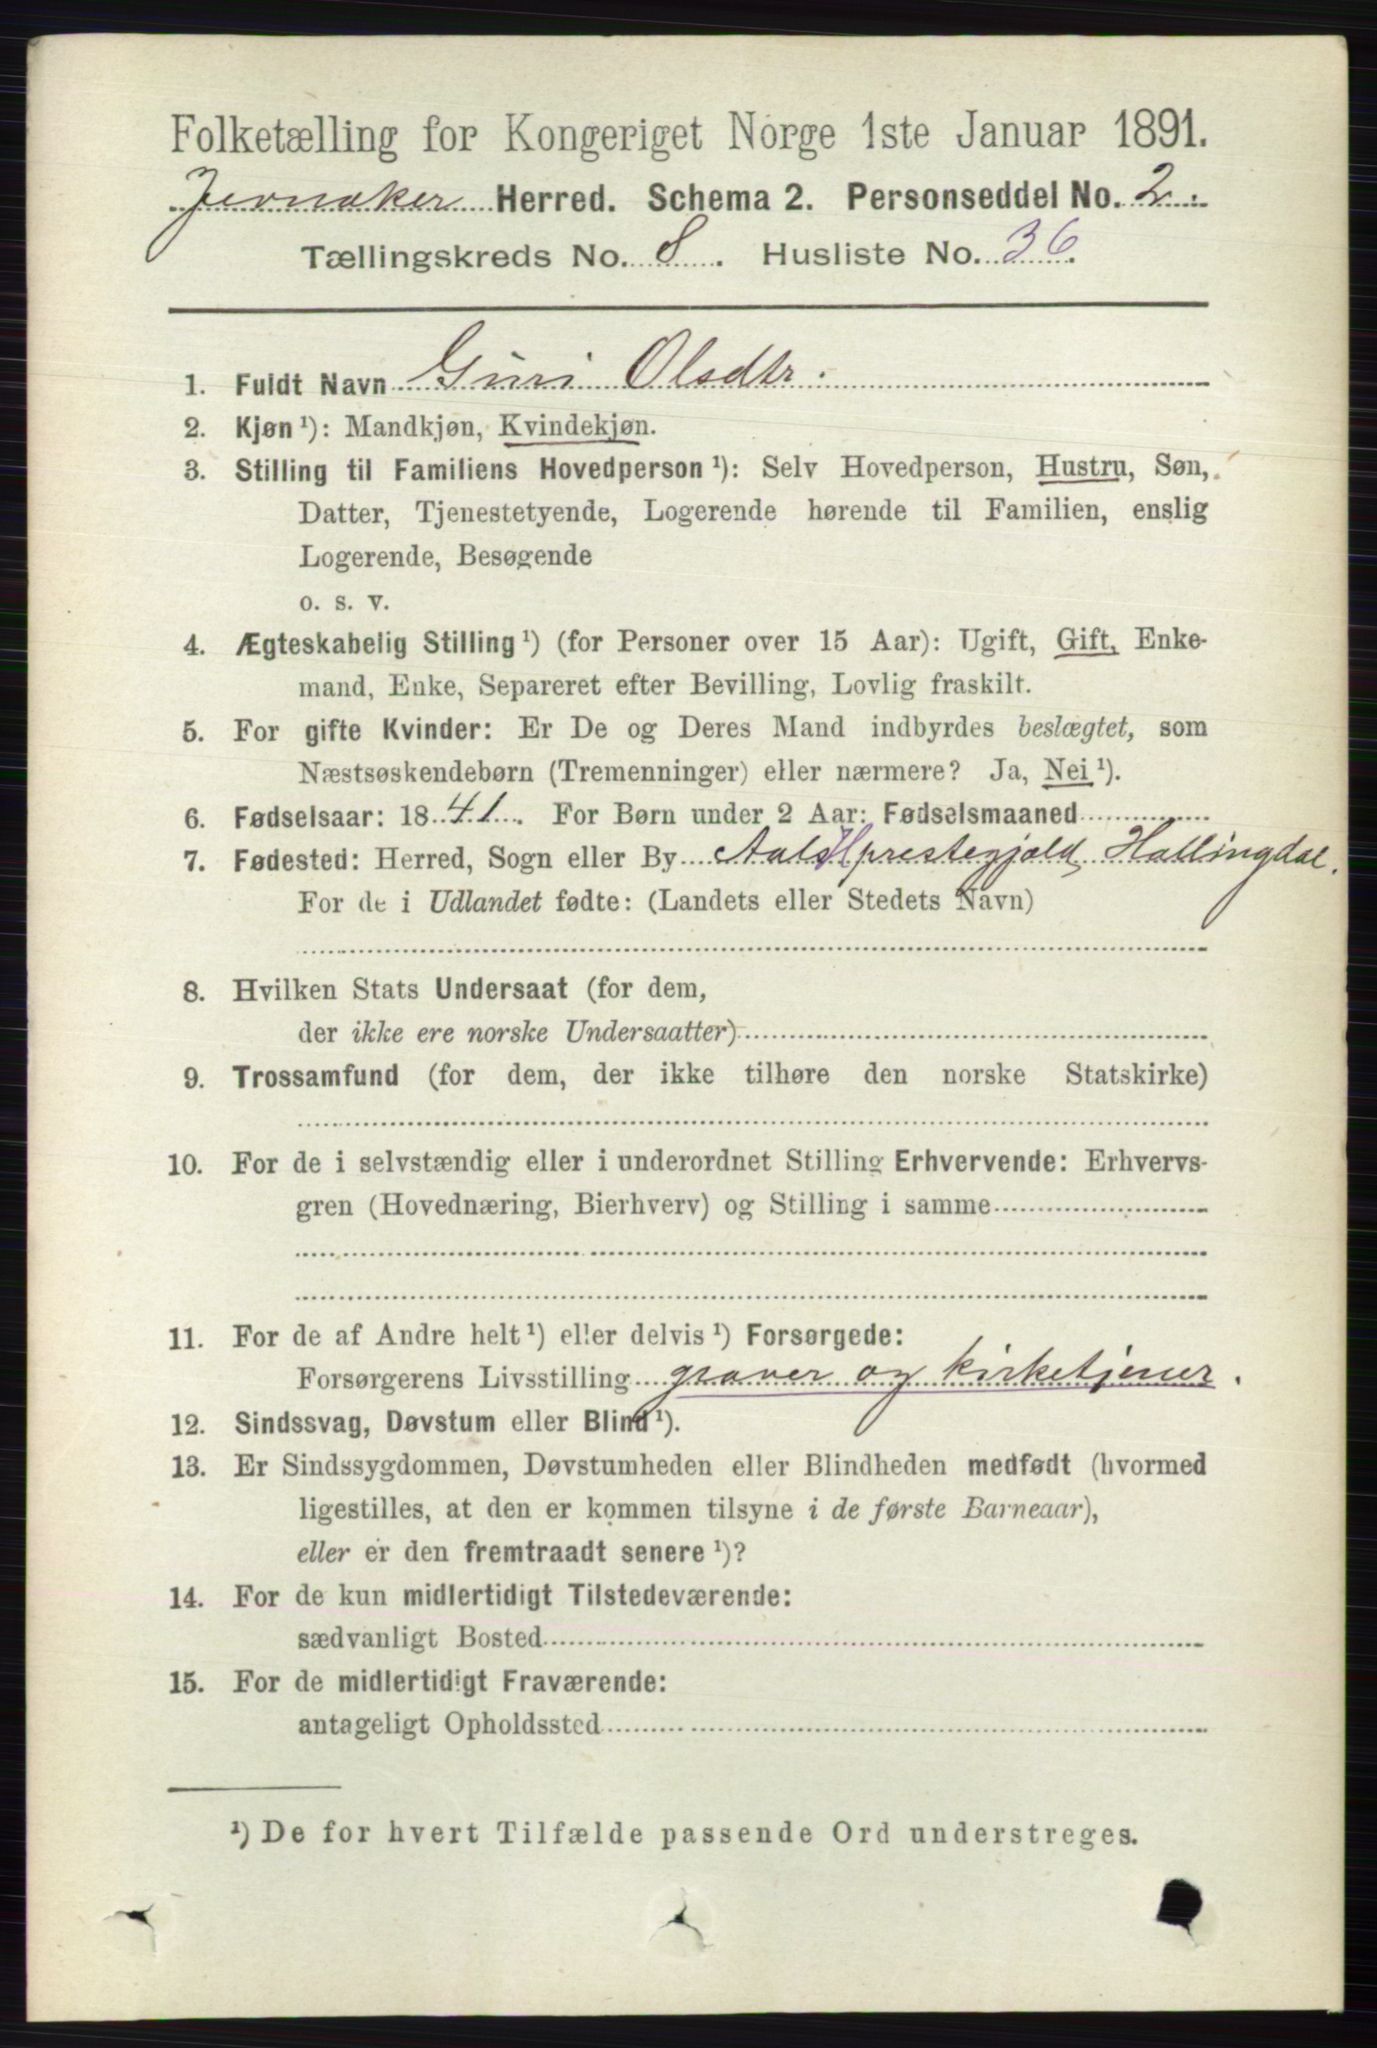 Folketælling for Kongeriget Norge 1ste Januar 1891.
Jevnaker Herred. Schema 2. Personseddel No. 2.
Tællingskreds No. 8. Husliste No. 36.
1. Fuldt Navn Guri Olsdtr.
2. Kjøn ¹): Mandkjøn, Kvindekjøn.
3. Stilling til Familiens Hovedperson ¹): Selv Hovedperson, Hustru, Søn,
Datter, Tjenestetyende, Logerende hørende til Familien, enslig
Logerende, Besøgende
o. s. v.
4. Ægteskabelig Stilling ¹) (for Personer over 15 Aar): Ugift, Gift, Enke-
mand, Enke, Separeret efter Bevilling, Lovlig fraskilt.
5. For gifte Kvinder: Er De og Deres Mand indbyrdes beslægtet, som
Næstsøskendebørn (Tremenninger) eller nærmere? Ja, Nei ¹).
6. Fødselsaar: 1841. For Børn under 2 Aar: Fødselsmaaned
7. Fødested: Herred, Sogn eller By Aals H prestegjeld, Hallingdal.
For de i Udlandet fødte: (Landets eller Stedets Navn)
8. Hvilken Stats Undersaat (for dem,
der ikke ere norske Undersaatter)
9. Trossamfund (for dem, der ikke tilhøre den norske Statskirke)
10. For de i selvstændig eller i underordnet Stilling Erhvervende: Erhvervs-
gren (Hovednæring, Bierhverv) og Stilling i samme
11. For de af Andre helt ¹) eller delvis ¹) Forsørgede:
Forsørgerens Livsstilling graver og kirketjener.
12. Sindssvag, Døvstum eller Blind ¹).
13. Er Sindssygdommen, Døvstumheden eller Blindheden medfødt (hvormed
ligestilles, at den er kommen tilsyne i de første Barneaar),
eller er den fremtraadt senere ¹)?
14. For de kun midlertidigt Tilstedeværende:
sædvanligt Bosted
15. For de midlertidigt Fraværende:
antageligt Opholdssted
¹) De for hvert Tilfælde passende Ord understreges.